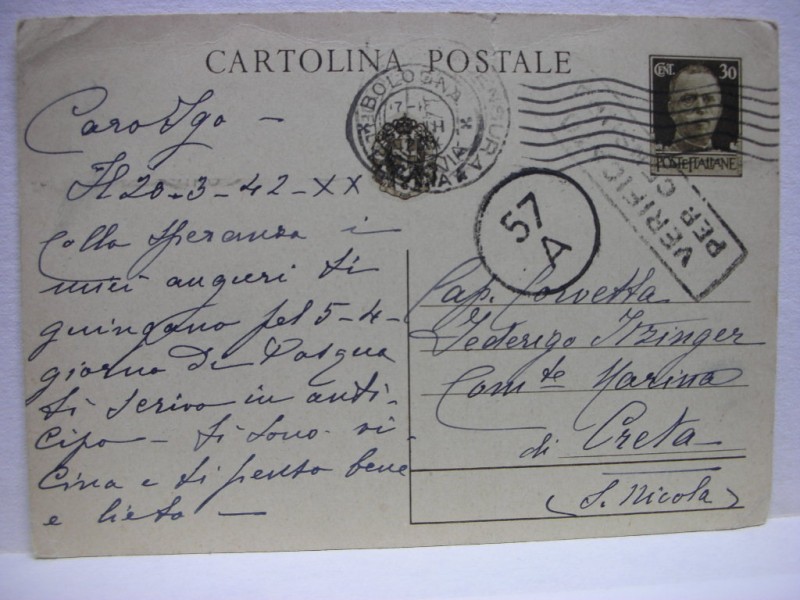 CARTOLINA POSTALE
CENT. 30
POSTE ITALIANE
BOLOGNA
CENSURA
VERIFIC
PER C
57
A
Caro Igo -
Il 20-3-42-XX
Colla speranza i
miei auguri ti
giungano pel 5-4-
giorno di Pasqua
ti scrivo in anti-
cipo - ti sono vi-
cina e ti penso bene
e lieto -
Cap. Corvetta
Federigo
Com.te Marina
di Creta
(S. Nicola)